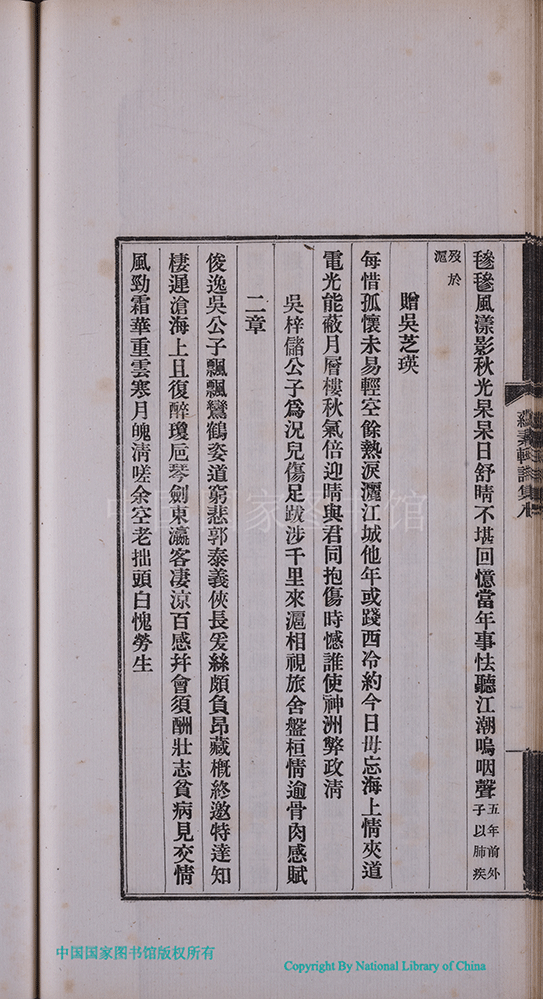 毿毿風漾影秋光杲杲日舒晴不堪回憶當年事怯聽江潮嗚咽聲五年前外子以肺疾
歿於滬
贈吳芝瑛
每惜孤懷未易輕空餘熱淚灑江城他年或踐西泠約今日毋忘海上情夾道
電光能蔽月層樓秋氣倍迎晴與君同抱傷時憾誰使神洲弊政淸
吳梓儲公子爲況兒傷足跋涉千里來滬相視旅舍盤桓情逾骨肉感賦
二章
俊逸吳公子飄飄鸞鶴姿道窮悲郭泰義俠長爰絲頗負昂藏槪終邀特達知
棲遲滄海上且復醉瓊巵琴劍東瀛客凄涼百感幷會須酬壯志貧病見交情
風勁霜華重雲寒月魄淸嗟余空老拙頭白愧勞生
詩集
中国国家图书馆
中国国家图书馆版权所有
Copyright By National Library of China